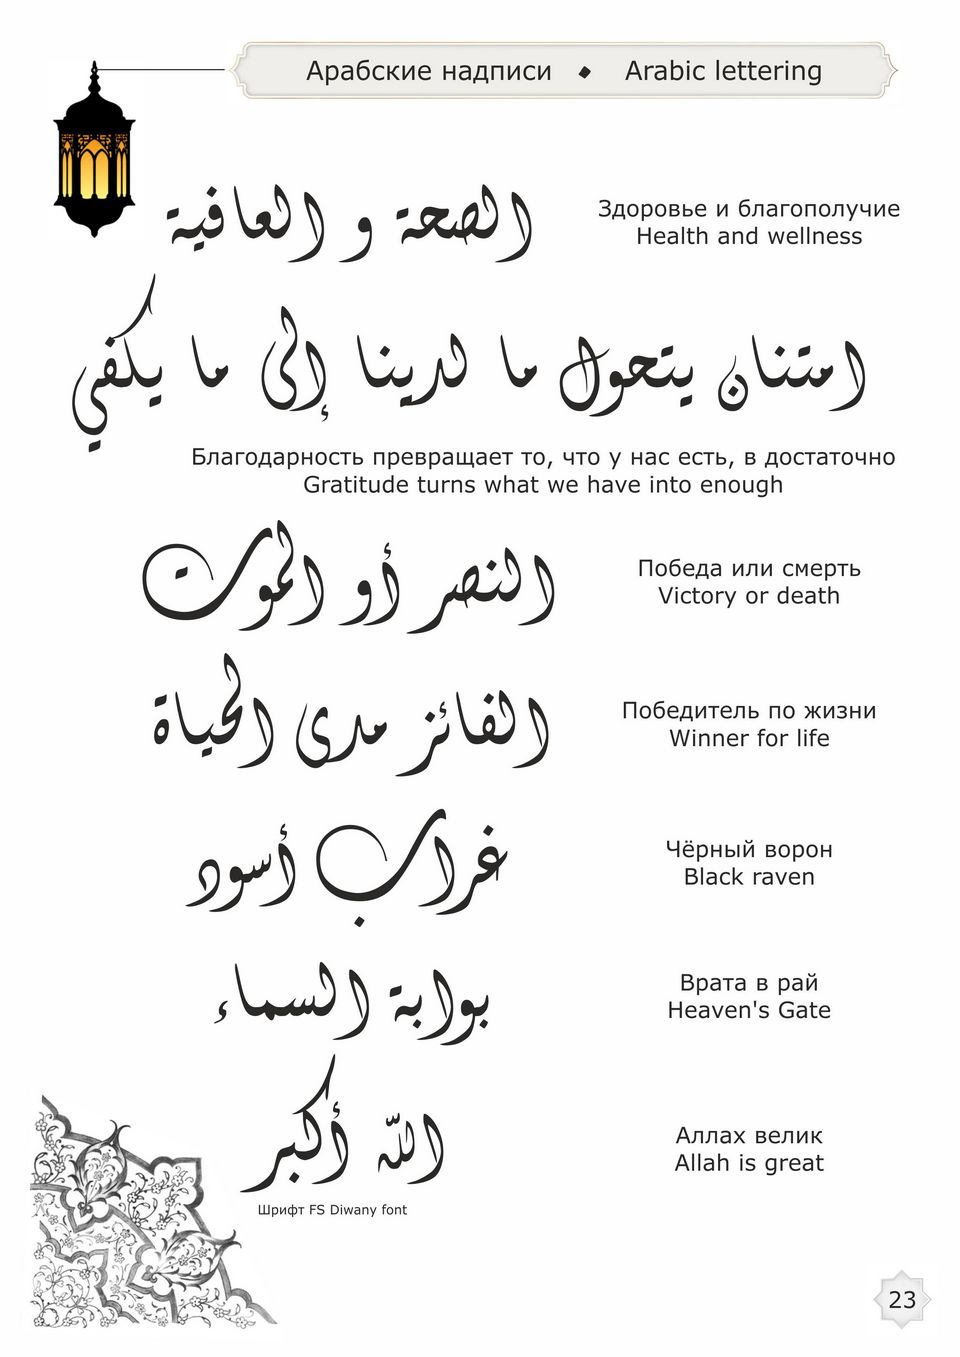 Арабские надписи ◆ Arabic lettering
الصحة و العافية
Здоровье и благополучие
Health and wellness
امتنان يتحول ما لدينا إلى ما يكفي
Благодарность превращает то, что у нас есть, в достаточно
Gratitude turns what we have into enough
النصر أو الموت
Победа или смерть
Victory or death
الفائز مدى الحياة
Победитель по жизни
Winner for life
غراب أسود
Чёрный ворон
Black raven
بوابة السماء
Врата в рай
Heaven's Gate
الله أكبر
Аллах велик
Allah is great
Шрифт FS Diwany font
23